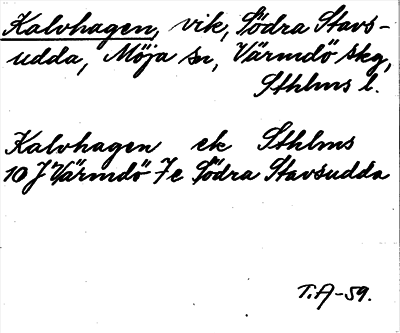 Kalvhagen, vik, Södra Stavs-
udda, Möja sn, Värmdö skg,
Sthlms l.
Kalvhagen ek Sthlms
10 J Värmdö 7e Södra Stavsudda
T.A-59.